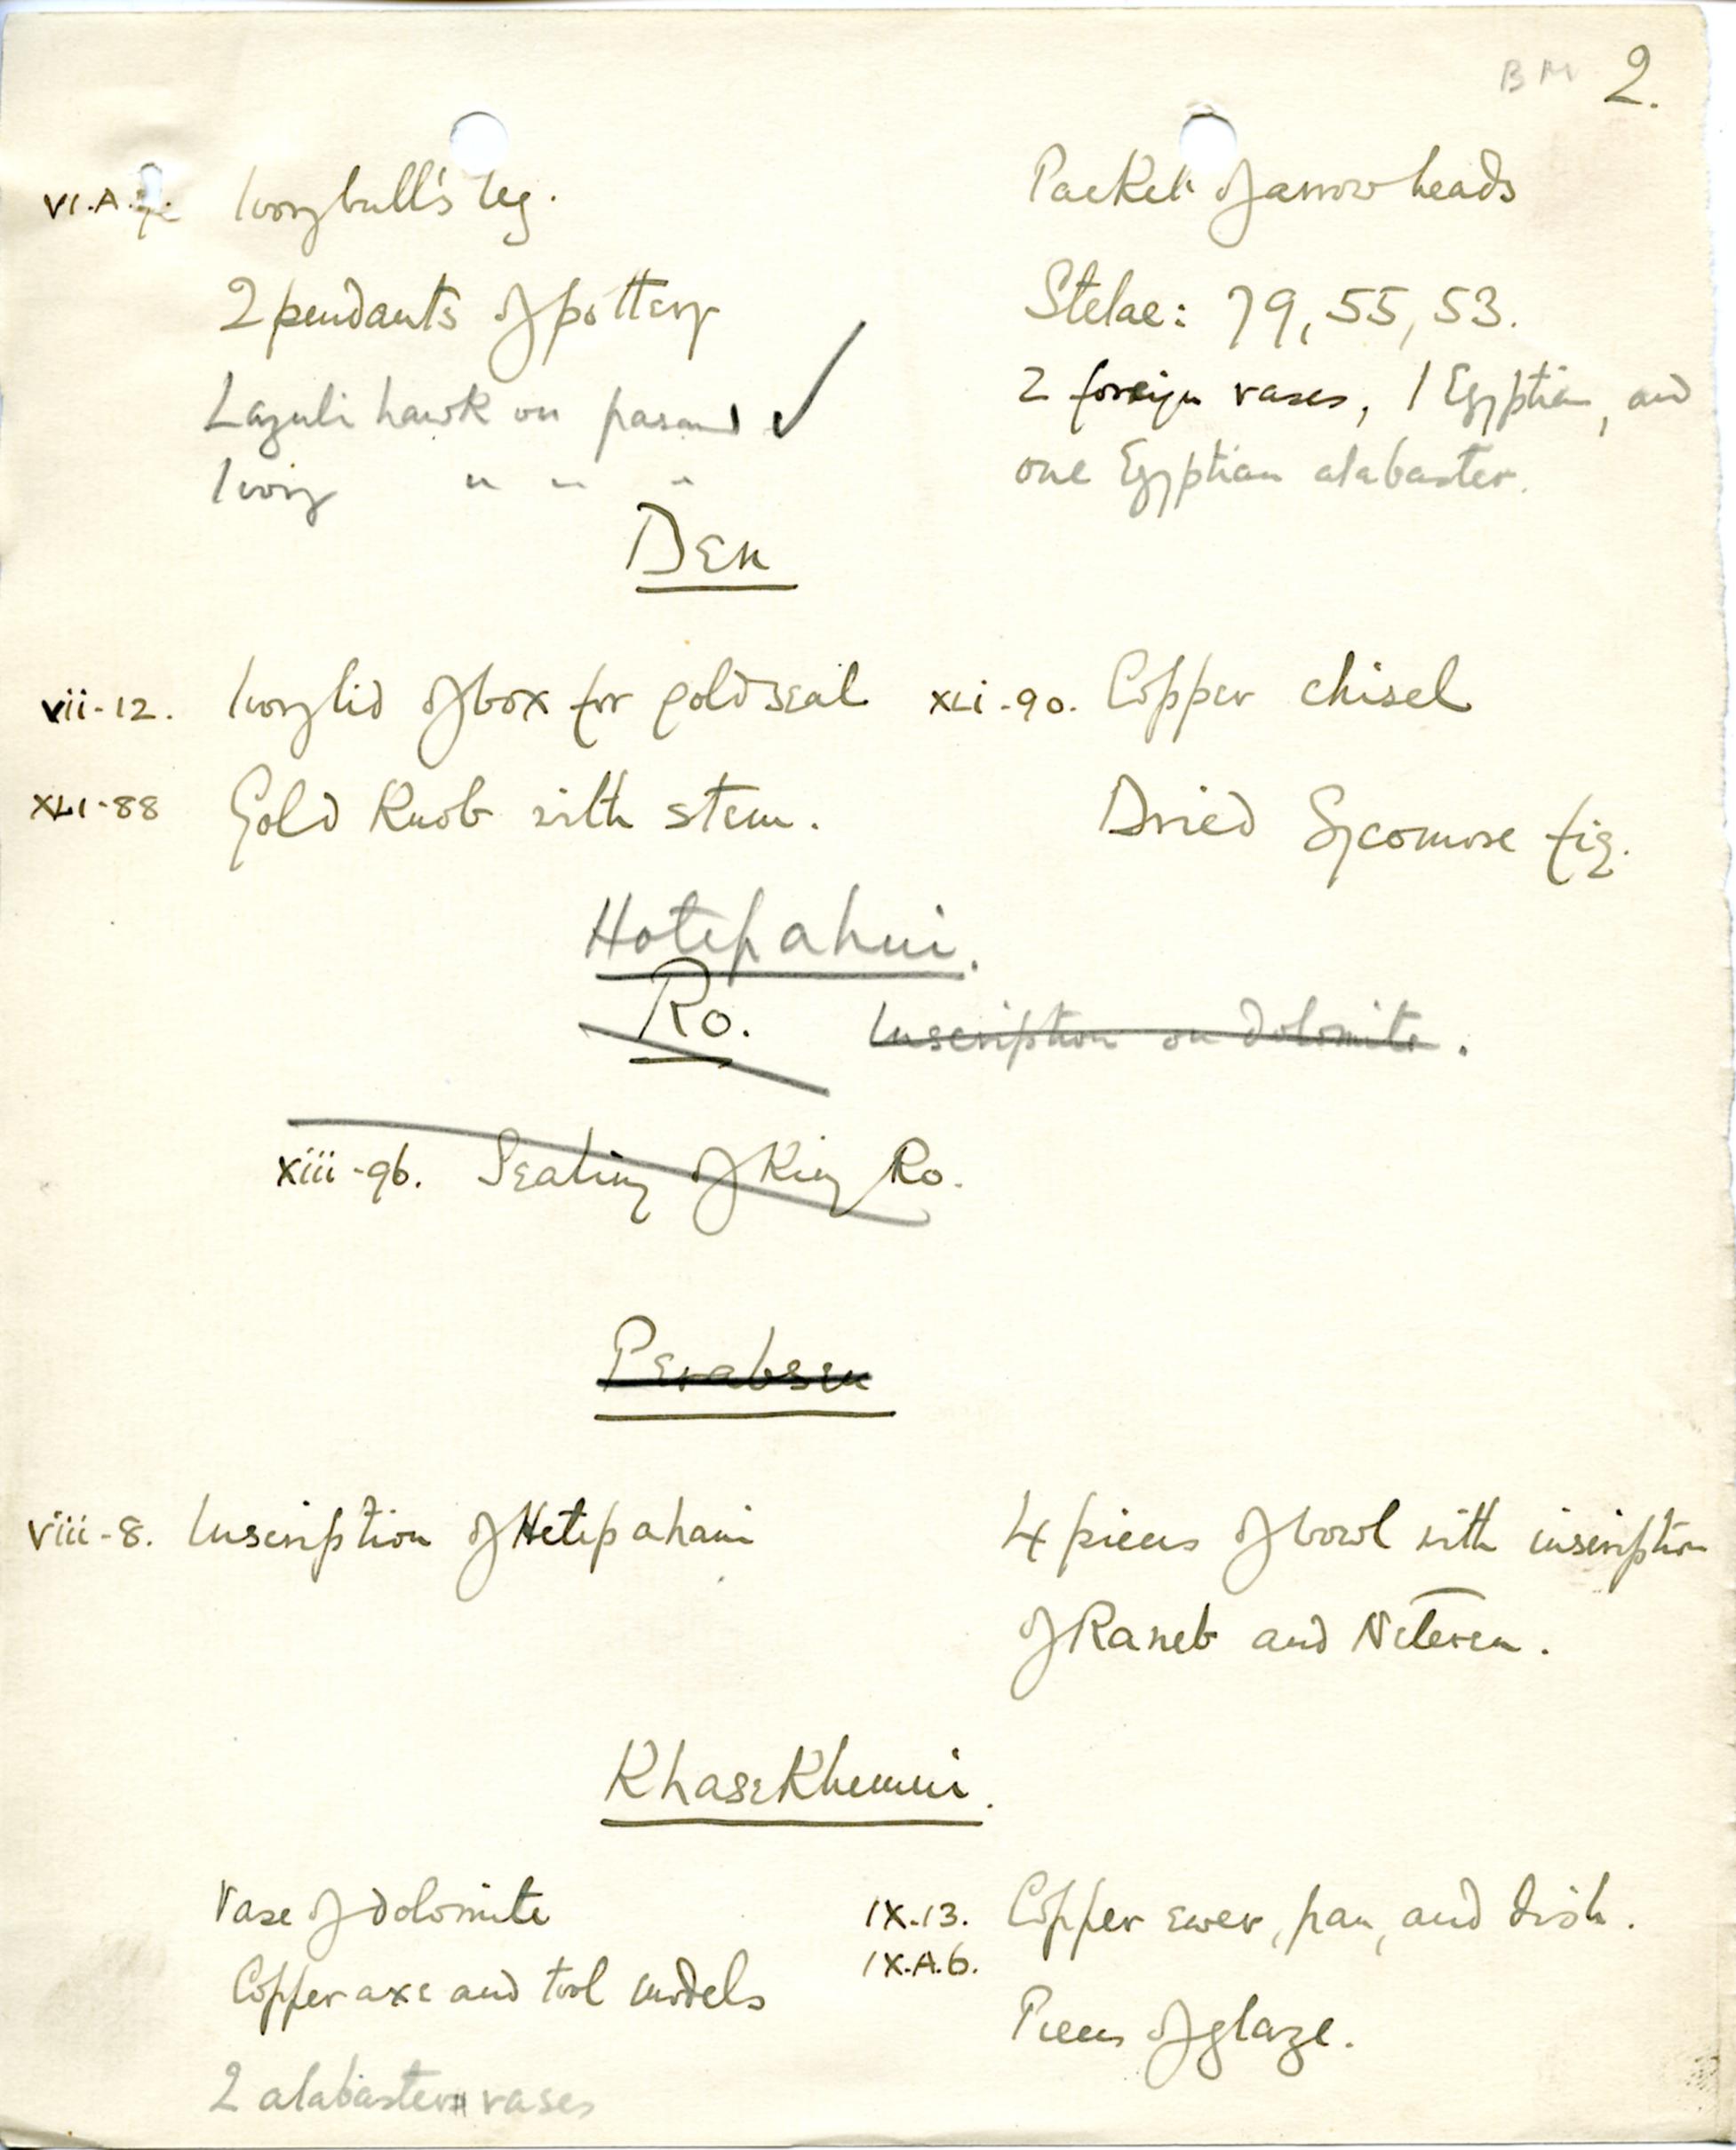 BM 2.
VI.A. Ivory bull's leg.
2 pendants of pottery
Lazuli hawk on
Ivory " " "
Packet of arrow heads
Stelae: 79, 55, 53.
2 foreign vases, 1 Egyptian, and
one Egyptian alabaster.
Den
vii-12. Ivory lid of box for gold seal
XLI-88 Gold Knob with stem.
XLi-90. Copper chisel
Dried Sycomore fig.
Hotepahui.
Ro. Inscription on dolomite.
xiii-96. Sealing of King Ro.
Perabsen
viii-8. Inscription of Hetepahaui
4 pieces of bowl with inscription
of Raneb and Neteren.
Khasekhemui.
Vase of dolomite
Copper axe and tool models
2 alabaster vases
IX.13. Copper ewer, pan, and dish.
IX.A.6.
Pieces of glaze.